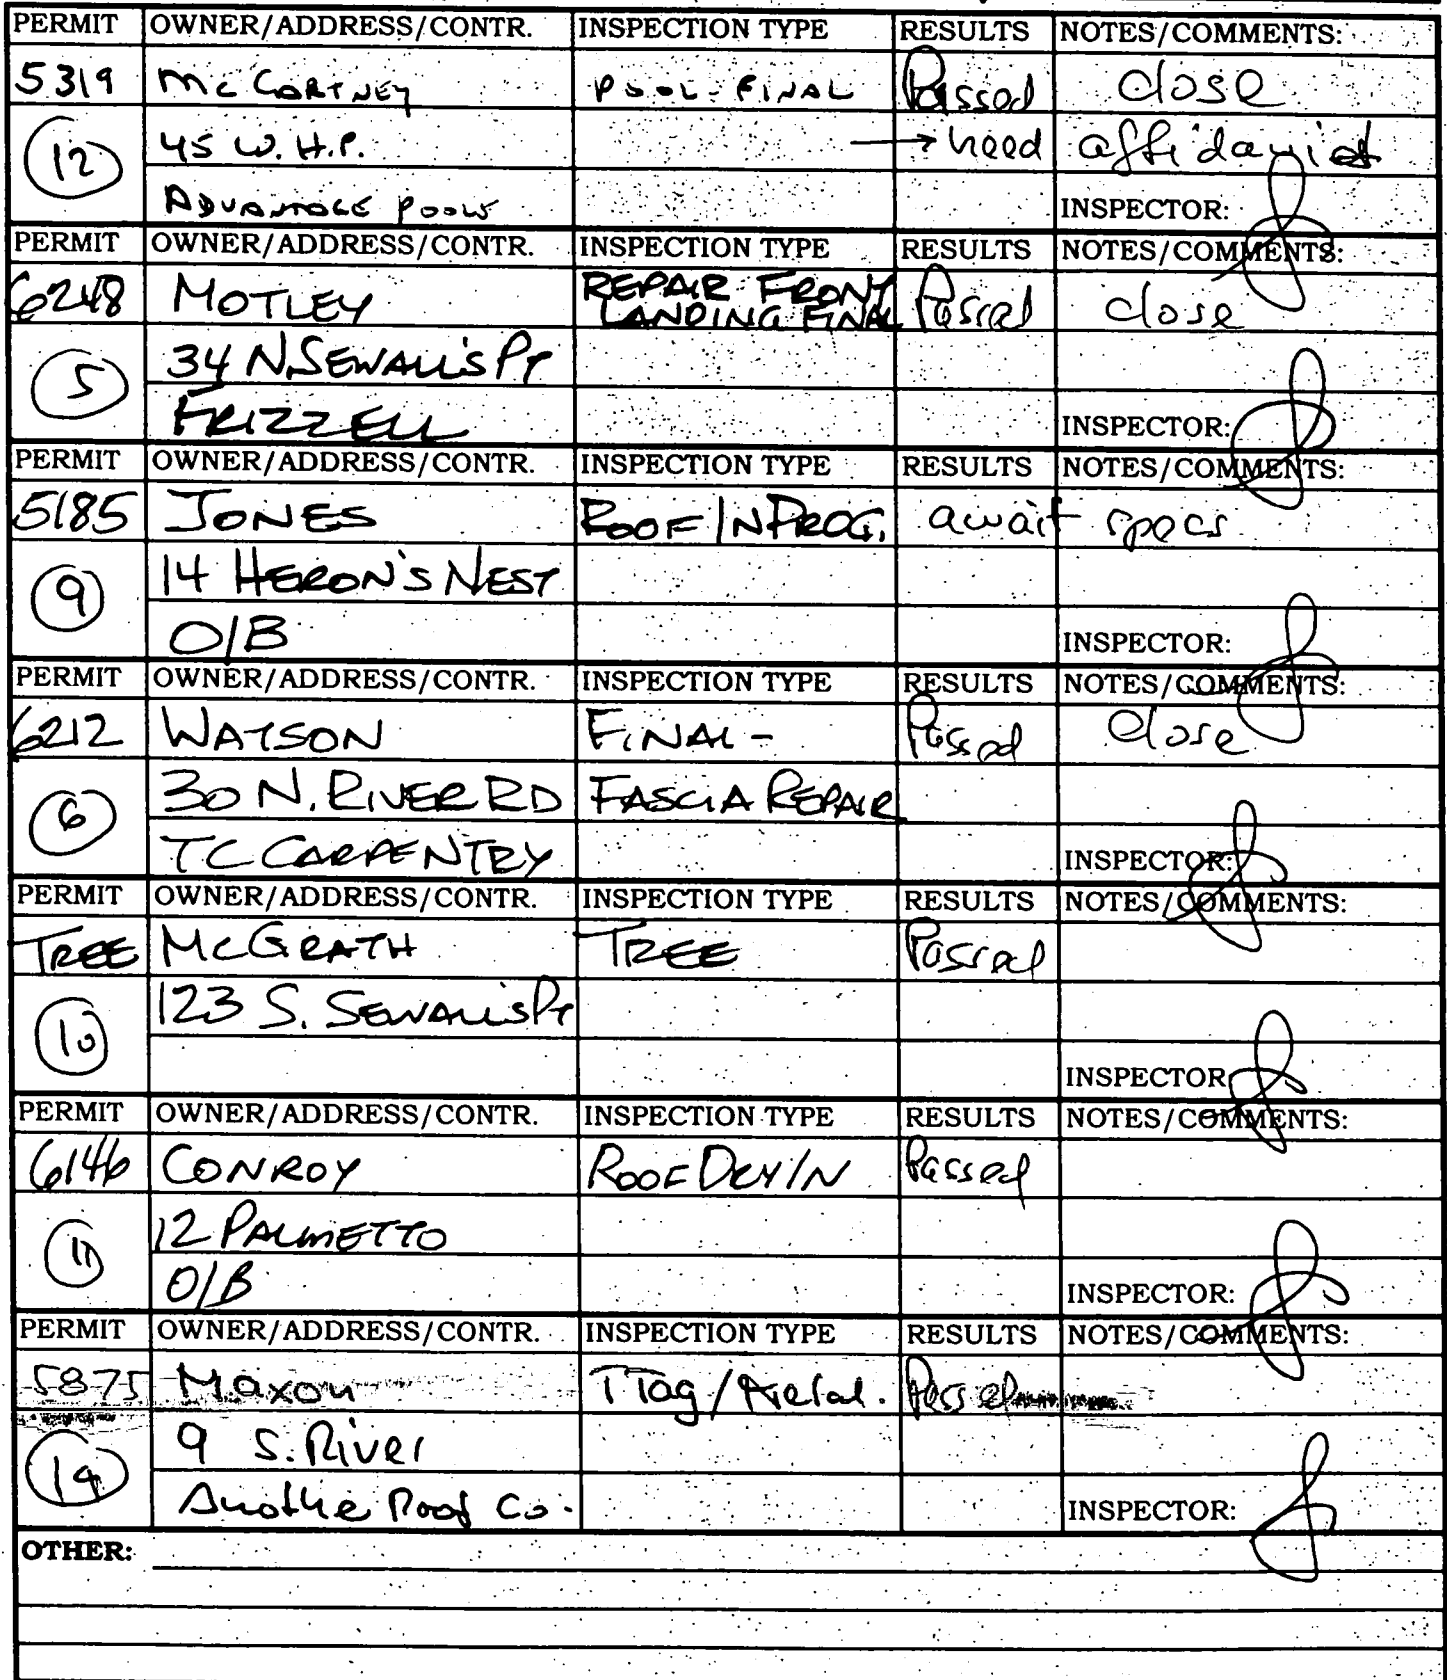 PERMIT OWNER/ADDRESS/CONTR. INSPECTION TYPE RESULTS NOTES/COMMENTS:
5319 McCARTNEY POOL-FINAL Passed close
12 45 W.H.P. → need affidavid
ADVANTAGE POOLS INSPECTOR:
PERMIT OWNER/ADDRESS/CONTR. INSPECTION TYPE RESULTS NOTES/COMMENTS:
6248 MOTLEY REPAIR FRONT LANDING FINAL Passed close
5 34 N. SEWALL'S PT
FRIZZELL INSPECTOR:
PERMIT OWNER/ADDRESS/CONTR. INSPECTION TYPE RESULTS NOTES/COMMENTS:
5185 JONES ROOF INPROG. await specs
9 14 HERON'S NEST
O/B INSPECTOR:
PERMIT OWNER/ADDRESS/CONTR. INSPECTION TYPE RESULTS NOTES/COMMENTS:
6212 WATSON FINAL - Passed close
6 30 N. RIVER RD FASCIA REPAIR
TC CARPENTRY INSPECTOR:
PERMIT OWNER/ADDRESS/CONTR. INSPECTION TYPE RESULTS NOTES/COMMENTS:
TREE McGRATH TREE Passed
10 123 S. SEWALL'S PT
INSPECTOR
PERMIT OWNER/ADDRESS/CONTR. INSPECTION TYPE RESULTS NOTES/COMMENTS:
6146 CONROY ROOF DRY/N Passed
11 12 PALMETTO
O/B INSPECTOR:
PERMIT OWNER/ADDRESS/CONTR. INSPECTION TYPE RESULTS NOTES/COMMENTS:
5875 Maxon TTag/Metal. Passed
14 9 S. River
Anothe Roof Co. INSPECTOR:
OTHER: